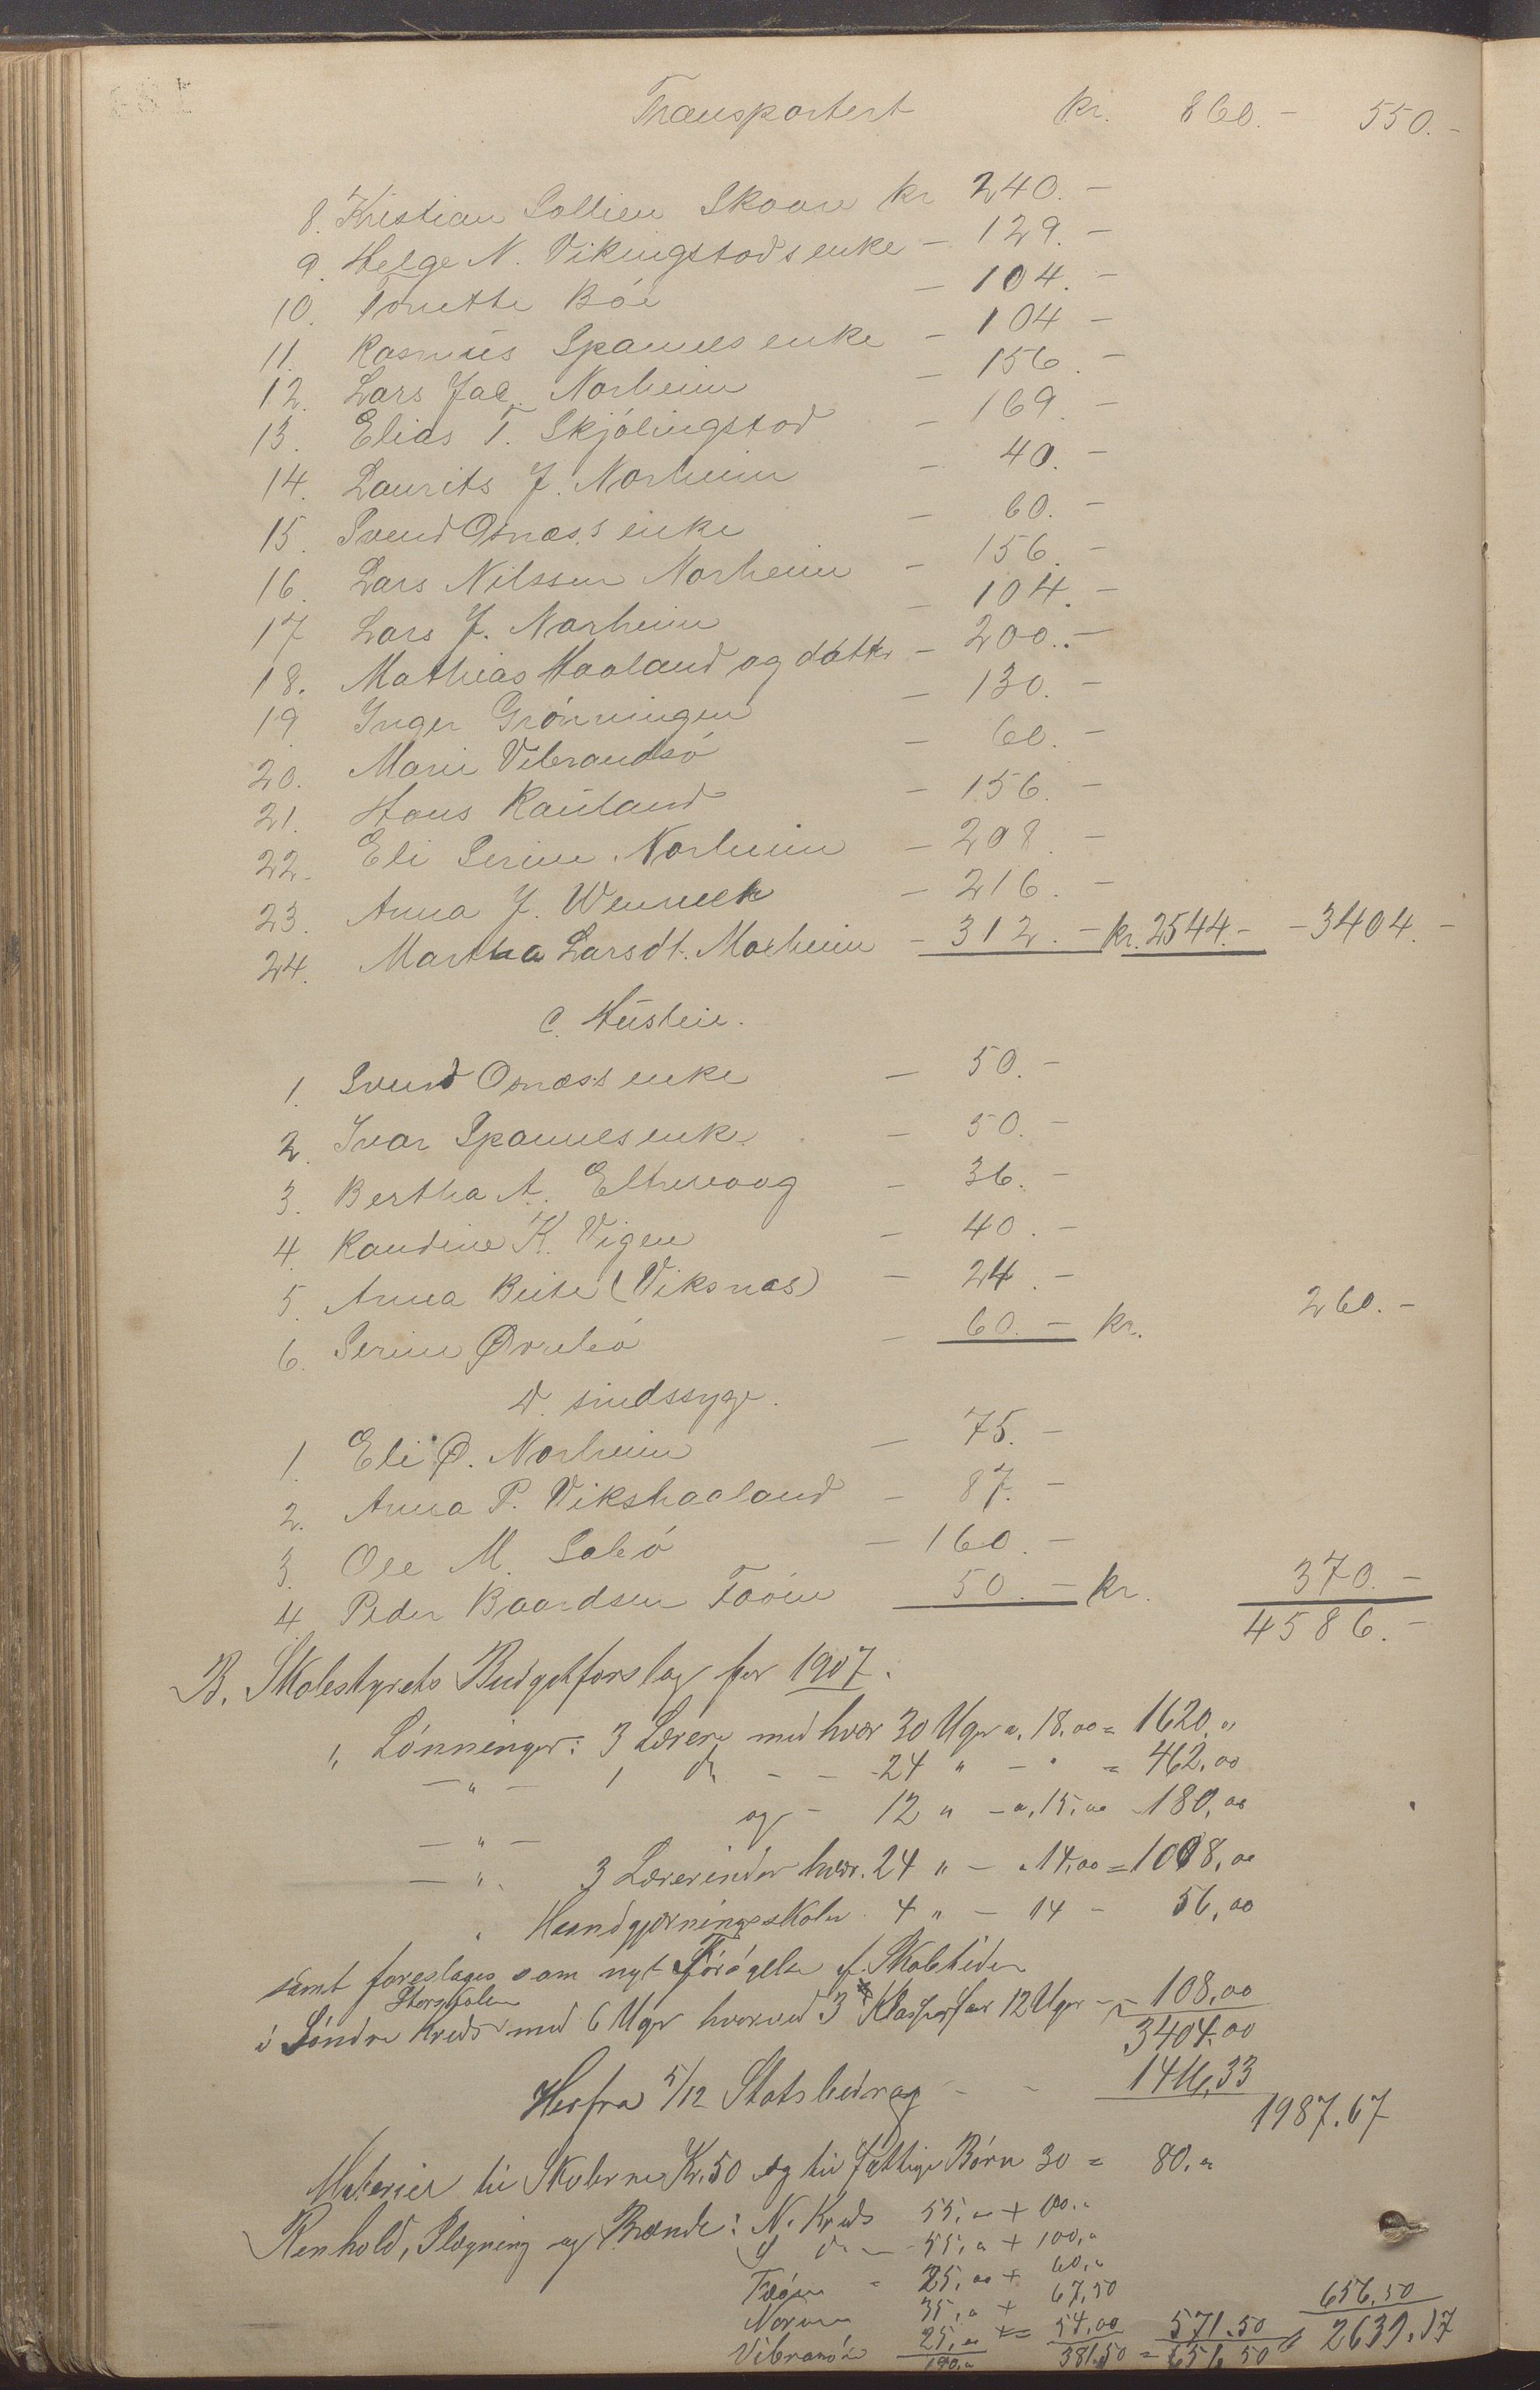 Transportert kr. 860.- 550.-
8. Kristian Sollien Skaar kr 240.-
9. Helge N. Vikingstads enke - 129.-
10. Tonette Bøe - 104.-
11. Rasmus Spannes enke - 104.-
12. Lars Jac. Norheim - 156.-
13. Elias T. Skjølingstad - 169.-
14. Laurits J. Norheim - 40.-
15. Svend Osnæs's enke - 60.-
16. Lars Nilssen Norheim - 156.-
17 Lars J. Norheim - 104.-
18. Mathias Haaland og datter - 200.-
19. Inger Grønningen - 130.-
20. Marie Vibrandsø - 60.-
21. Hans Rauland - 156.-
22. Eli Serine Norheim - 208.-
23. Anna J. Wenneck - 216.-
24. Martha Larsdt. Norheim - 312.- kr. 2544.- - 3404.-
C. Husleie.
1. Svend Osnæs's enke - 50.-
2. Ivar Spannes enke - 50.-
3. Bertha A. Eltervaag - 36.-
4. Randine K. Vigen - 40.-
5. Anna Beite (Viksnæs) - 24.-
6. Serine Øvrebø - 60.- kr. 260.-
D. sindssyge.
1. Eli O. Norheim - 75.-
2. Anna P. Vikshaaland - 87.-
3. Ole M. Sabø - 160.-
4. Peder Baardsen Fæøen 50.- kr. 370.-
4586.-
B. Skolestyrets Budgetforslag for 1907.
1, Lønninger: 3 Lærere med hver 30 Uger a. 18.00 = 1620,"
- " - 1 do - - 24 " - " = 462,00
- " - og - 12 " - a. 15,00 180,00
- " - 3 Lærerinder hver. 24 " - " 14,00 = 1008,00
" Haandgjerningsskoler 4 " - 14 - 56,00
samt foreslages som nyt Forøgelse af Skoletiden
Storskolen
i Søndre Kreds med 6 Uger hvorved 3 Klasse faar 12 Uger - - 108,00
3404.00
Herfra 5/12 Statsbidrag - - 1416,33
1987.67
Materiel til Skolerne Kr. 50 og til fattige Børn 30 = 80."
Renhold, Ilægning og Brænde: N. Kreds 55," + 100."
S do - 55," + 100,"
Fæøen - 25,00 + 60,"
Norum 35," + 67,50
Vibransø 25," + = 54,00 571.50 656,50
190," 381,50 = 656 50 2639.17